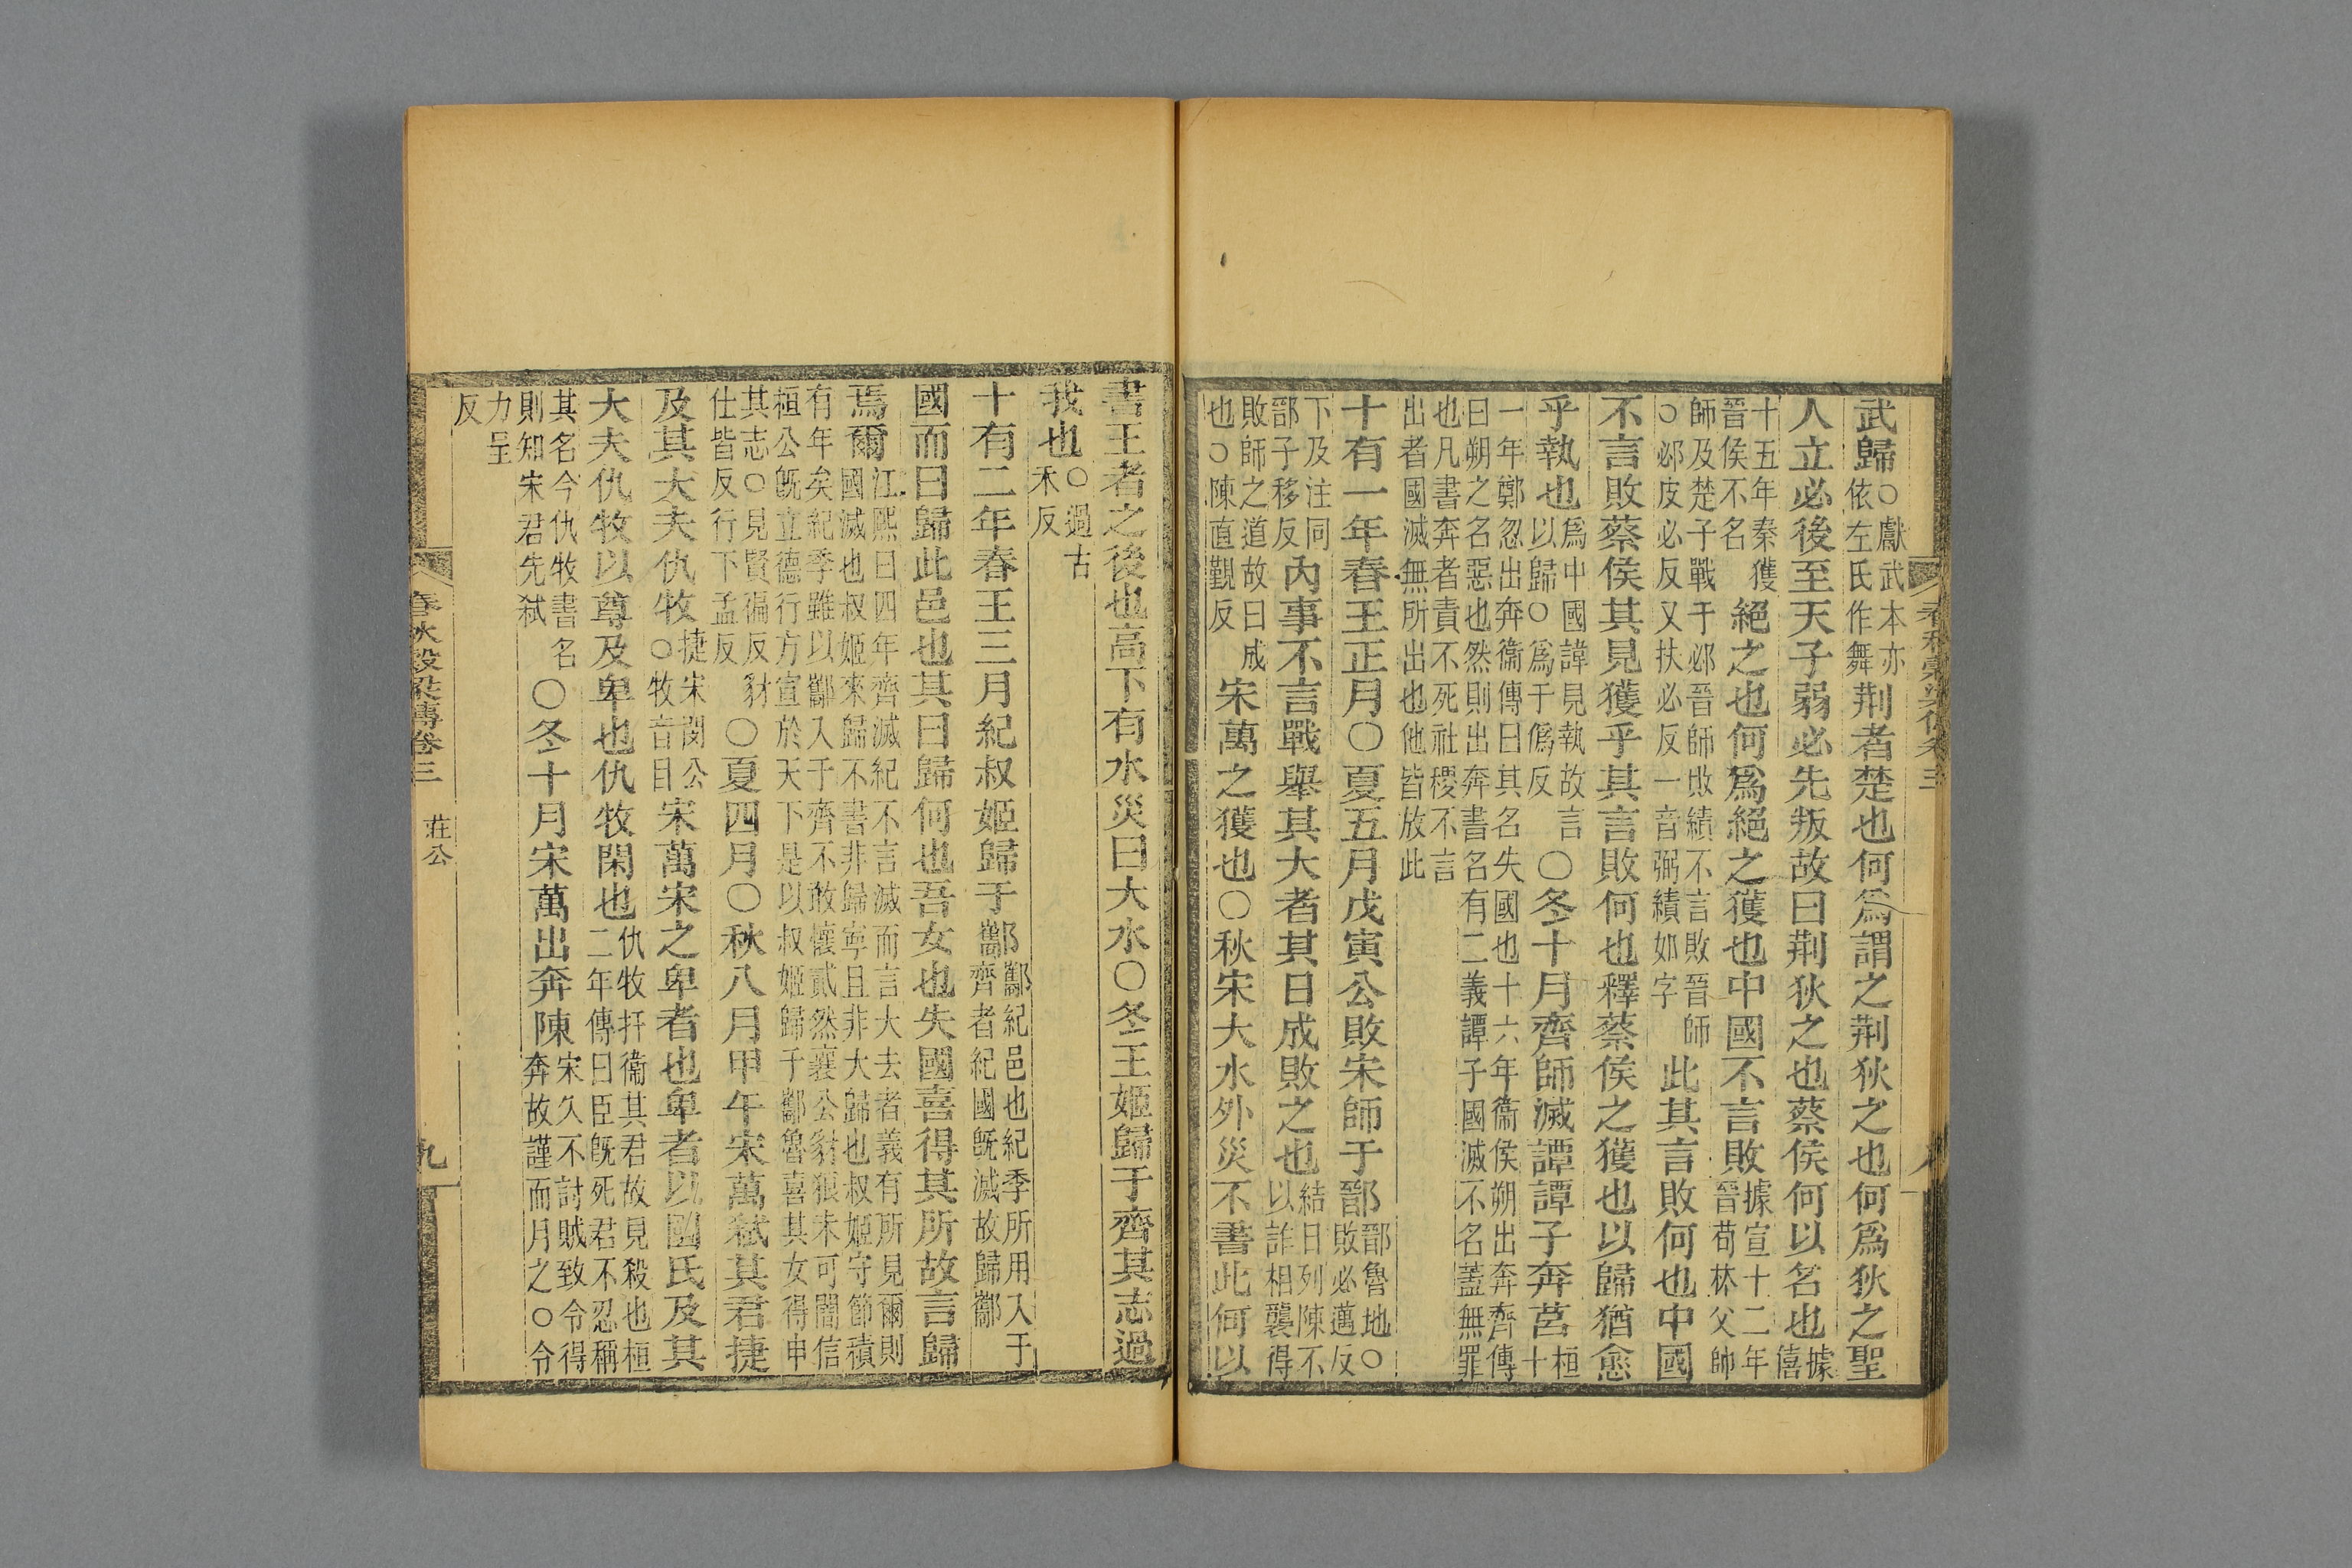 武歸○獻武本亦依左氏作舞荆者楚也何爲謂之荆狄之也何爲狄之聖
人立必後至天子弱必先叛故曰荆狄之也蔡侯何以名也據僖
十五年秦獲晉侯不名絕之也何爲絕之獲也中國不言敗據宣十二年晉荀林父帥
師及楚子戰于邲晉師敗績不言敗晉師○邲皮必反又扶必反一音弼績如字此其言敗何也中國
不言敗蔡侯其見獲乎其言敗何也釋蔡侯之獲也以歸猶愈
乎執也爲中國諱見執故言以歸○爲于僞反○冬十月齊師滅譚譚子奔莒桓十
一年鄭忽出奔衞傳曰其名失國也十六年衞侯朔出奔齊傳曰朔之名惡也然則出奔書名有二義譚子國滅不名蓋無罪
也凡書奔者責不死社稷不言出者國滅無所出也他皆放此
十有一年春王正月○夏五月戊寅公敗宋師于鄑鄑魯地○敗必邁反
下及注同鄑子移反內事不言戰舉其大者其日成敗之也結日列陳不以詐相襲得
敗師之道故曰成也○陳直覲反宋萬之獲也○秋宋大水外災不書此何以
書王者之後也高下有水災曰大水○冬王姬歸于齊其志過
我也○過古禾反
十有二年春王三月紀叔姬歸于酅酅紀邑也紀季所用入于齊者紀國旣滅故歸酅
國而曰歸此邑也其曰歸何也吾女也失國喜得其所故言歸
焉爾江熙曰四年齊滅紀不言滅而言大去者義有所見爾則國滅也叔姬來歸不書非歸寧且非大歸也叔姬守節積
有年矣紀季雖以酅入于齊不敢懷貳然襄公豺狼未可闇信桓公旣立德行方宣於天下是以叔姬歸于酅魯喜其女得申
其志○見賢徧反豺仕皆反行下孟反○夏四月○秋八月甲午宋萬弒其君捷
及其大夫仇牧捷宋閔公○牧音目宋萬宋之卑者也卑者以國氏及其
大夫仇牧以尊及卑也仇牧閑也仇牧扞衞其君故見殺也桓二年傳曰臣旣死君不忍稱
其名今仇牧書名則知宋君先弒○冬十月宋萬出奔陳宋久不討賊致令得奔故謹而月之○令
力呈反
春秋穀梁傳卷三
莊公
九